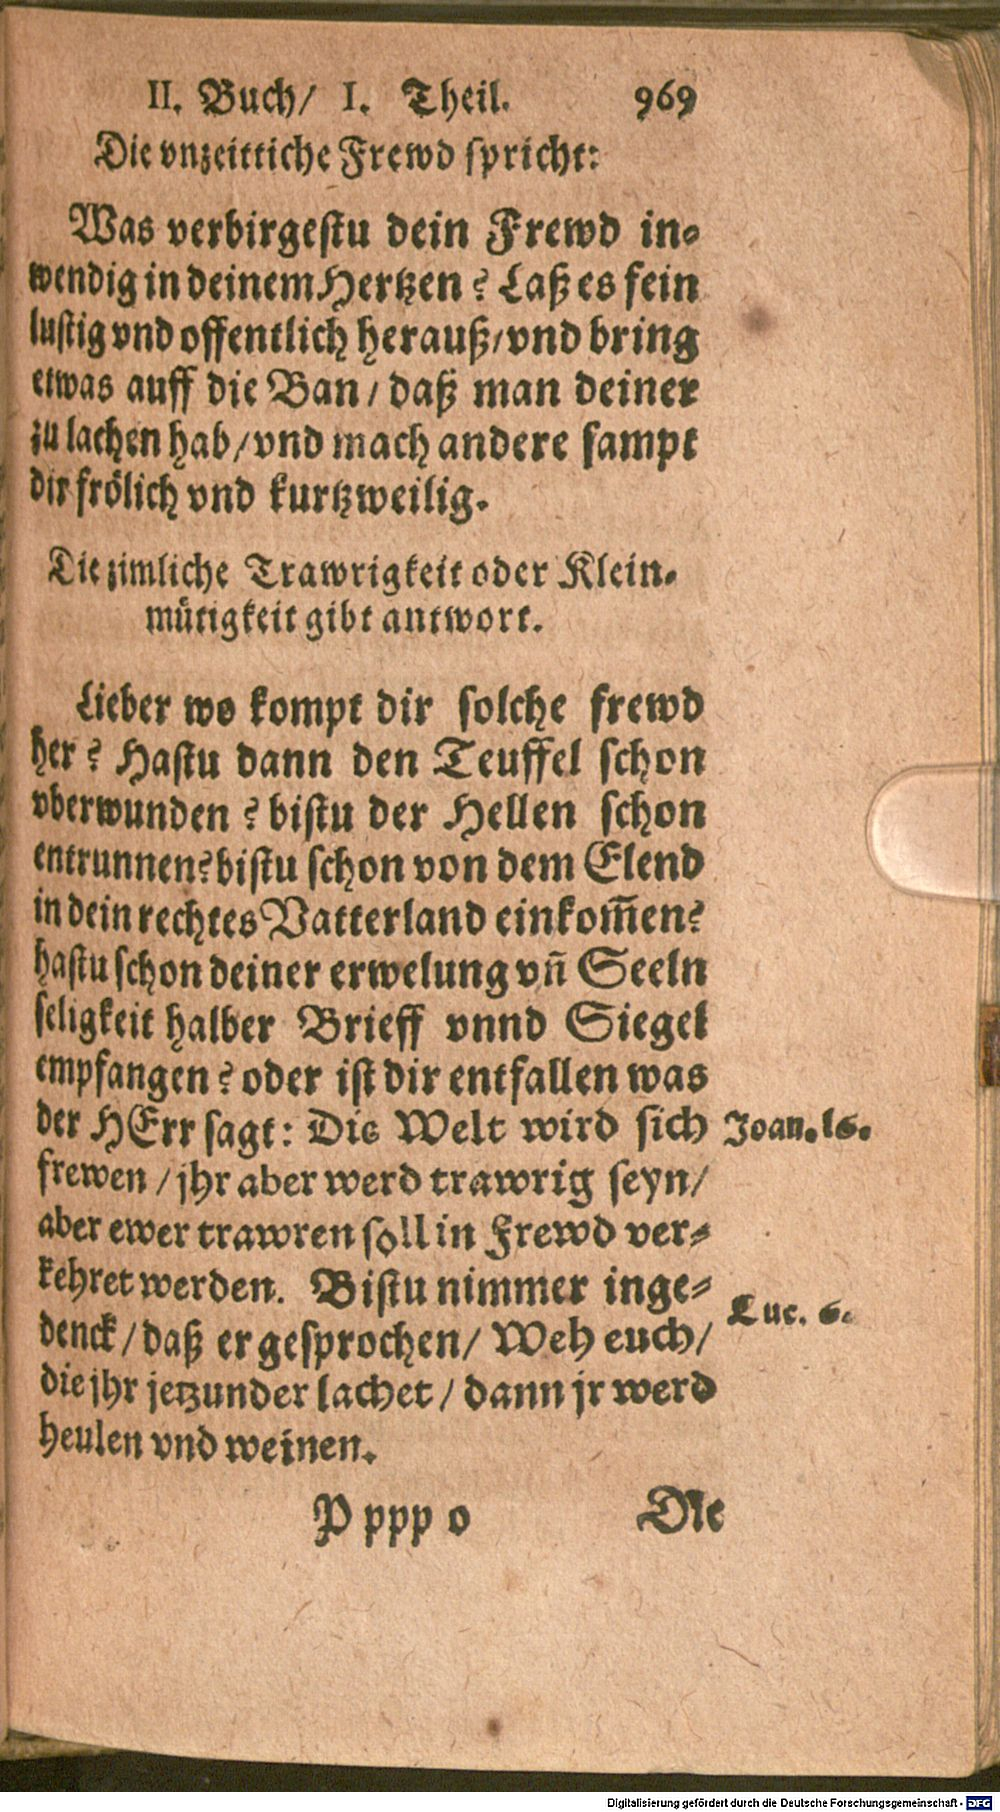 II. Buch/ I. Theil. 969
Die vnzeittiche Frewd spricht:
Was verbirgestu dein Frewd in-
wendig in deinem Hertzen? Laß es fein
lustig vnd offentlich herauß/vnd bring
etwas auff die Ban/ daß man deiner
zu lachen hab/vnd mach andere sampt
dir frölich vnd kurtzweilig.
Die zimliche Trawrigkeit oder Klein-
mütigkeit gibt antwort.
Lieber wo kompt dir solche frewd
her? Hastu dann den Teuffel schon
vberwunden? bistu der Hellen schon
entrunnen? bistu schon von dem Elend
in dein rechtes Vatterland einkom̄en?
hastu schon deiner erwelung vn̄ Seeln
seligkeit halber Brieff vnnd Siegel
empfangen? oder ist dir entfallen was
der HErr sagt: Die Welt wird sich
Joan. 16.
frewen/ jhr aber werd trawrig seyn/
aber ewer trawren soll in Frewd ver-
kehret werden. Bistu nimmer inge-
Luc. 6.
denck/ daß er gesprochen/ Weh euch/
die jhr jetzunder lachet/ dann jr werd
heulen vnd weinen.
P ppp o Die
Digitalisierung gefördert durch die Deutsche Forschungsgemeinschaft - DFG